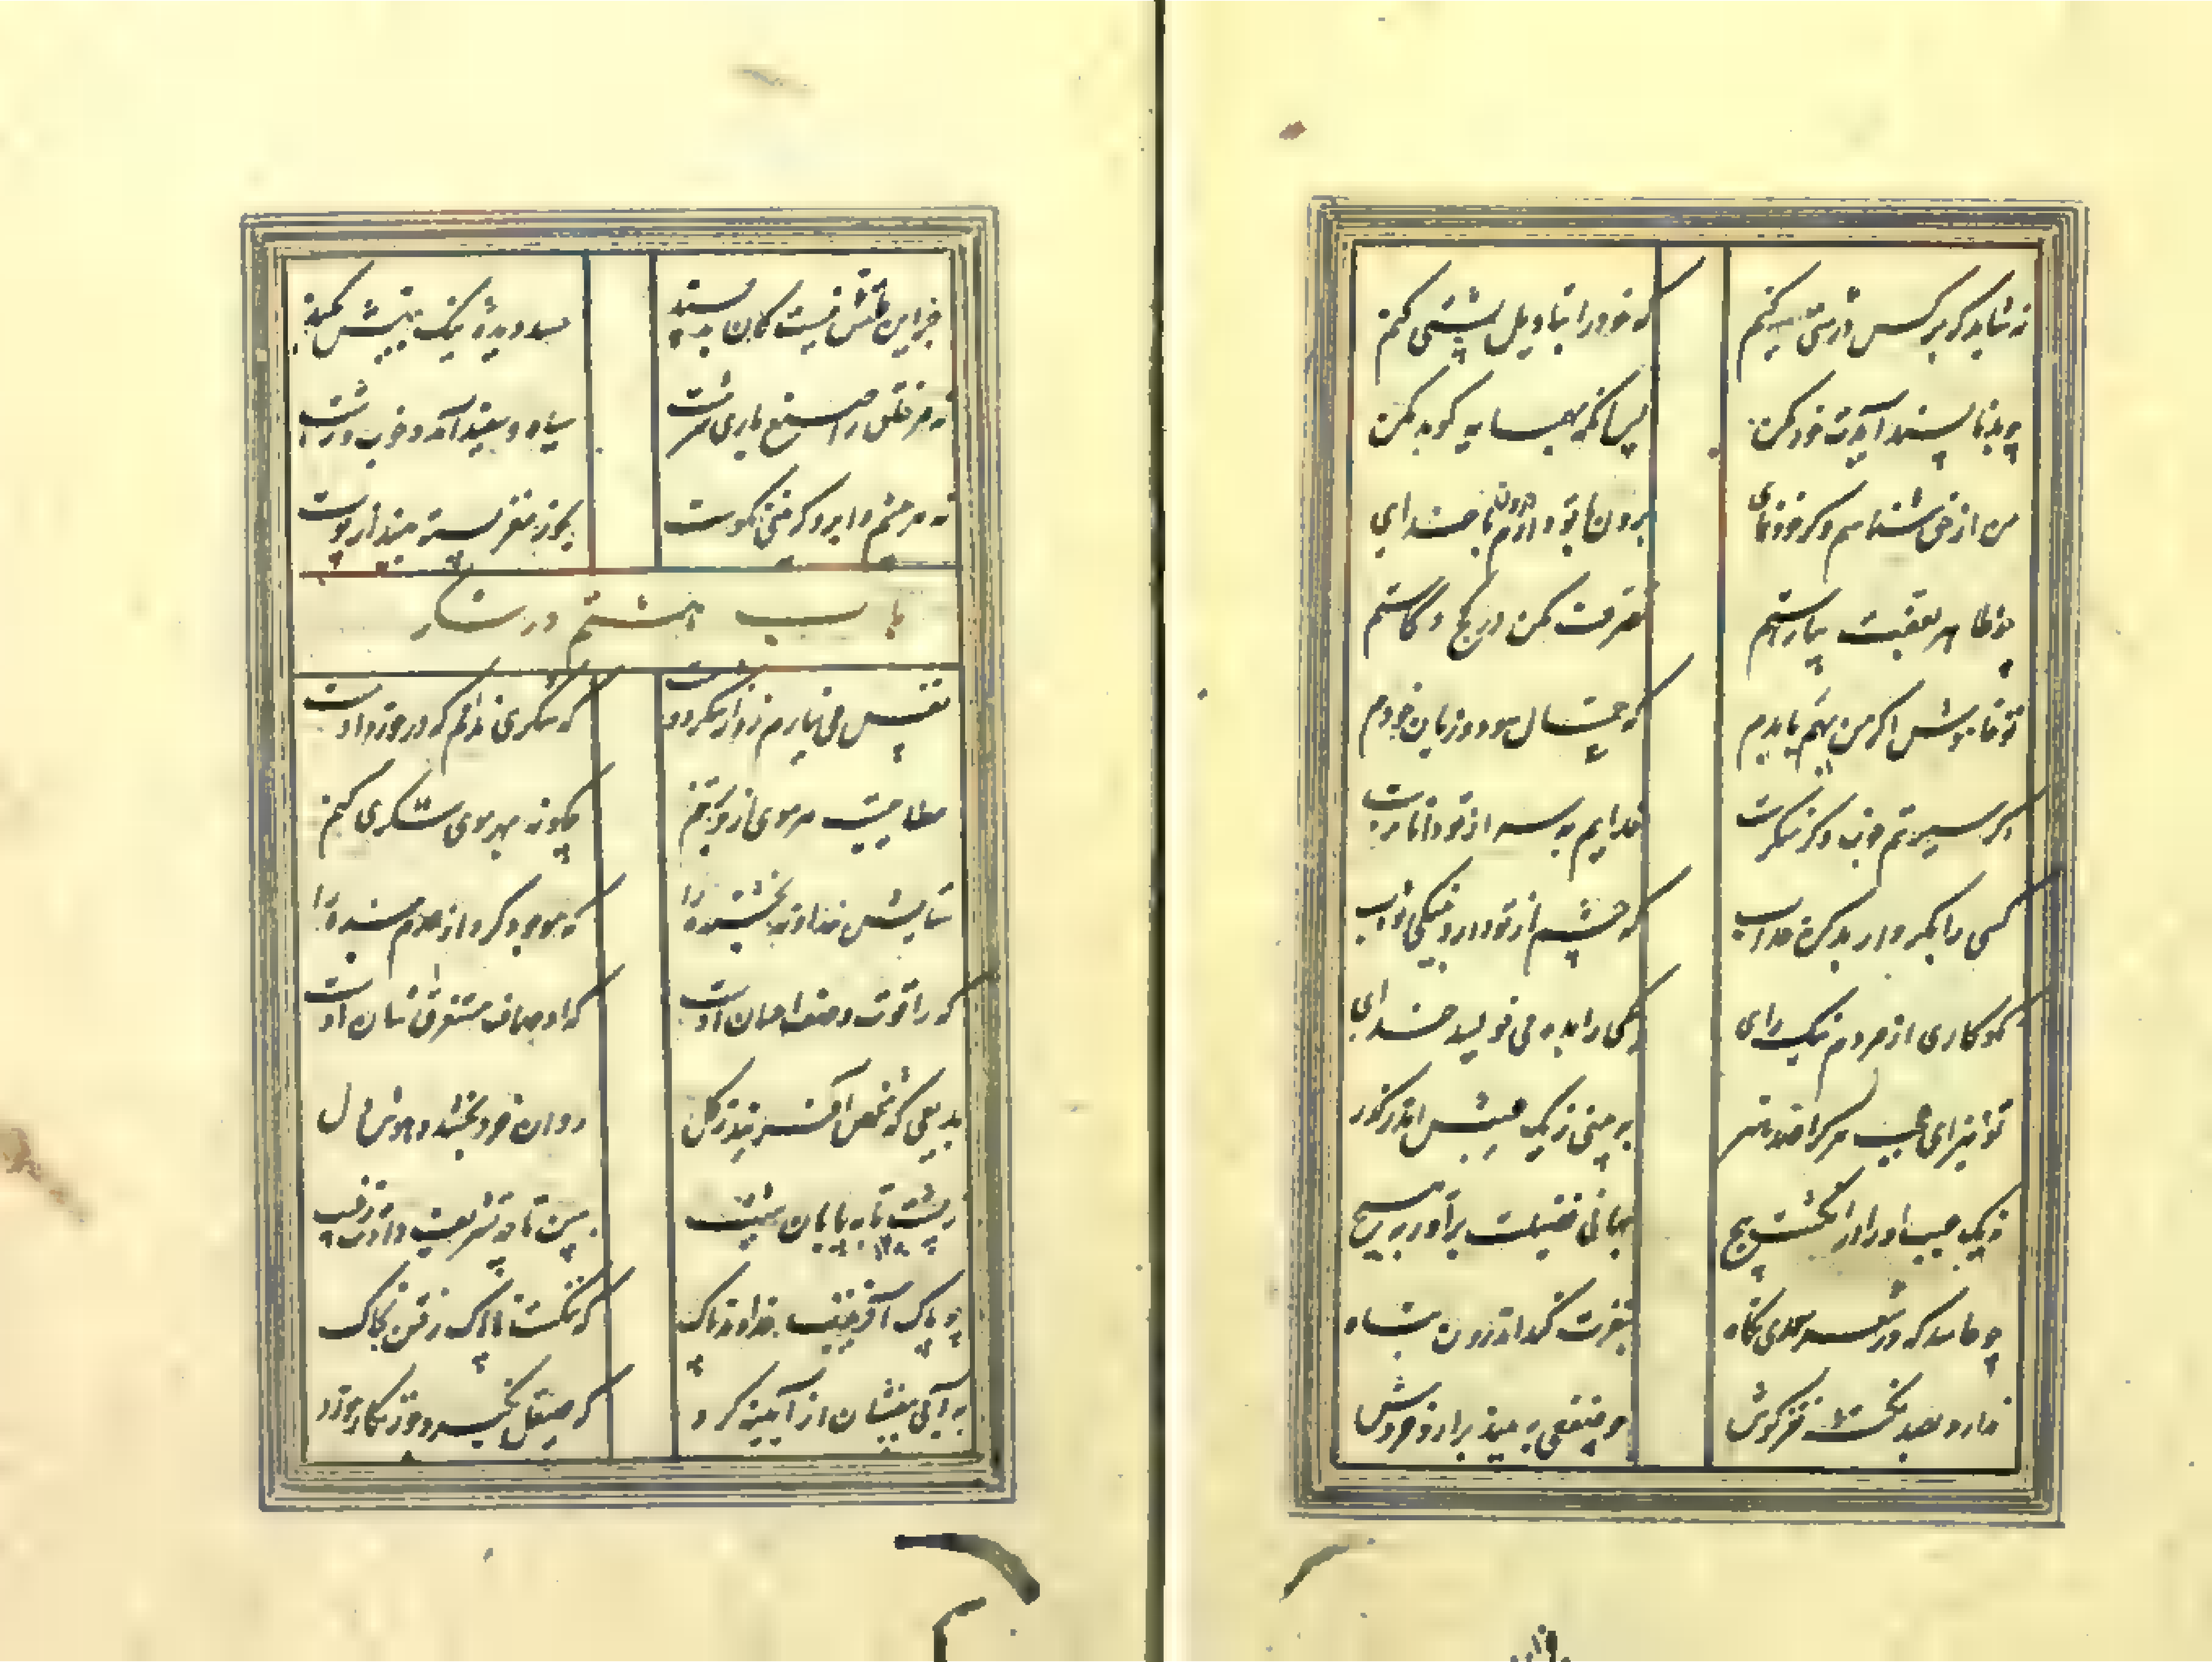 نه شاید که بر کس درشتی کنم
که خود را بتاویل پشتی کنم
چو بد ناپسند آیدت خود مکن
پس آنکه بهمسایه گو بد مکن
من ار حق شناسم وگر خودنمای
برون با تو دارم درون با خدای
چو ظاهر بعفت بیاراستم
تصرف مکن در کژ و کاستم
تو خاموش اگر من بهم یا بدم
که حمال سود و زیان خودم
اگر سیرتم خوب وگر منکرست
خدایم به سر از تو داناترست
کسی را بکردار بد کن عذاب
که چشم از تو دارد بنیکی ثواب
نکوکاری از مردم نیک رای
یکی را بده می نویسد خدای
تو نیز ای عجب هر کرا یک هنر
به بینی ز یک عیبش اندر گذر
نه یک عیب او را بر انگشت پیچ
جهانی فضیلت برآور بهیچ
چو حاسد که در شعر سعدی نگاه
بنفرت کند اندرون تباه
ندارد بصد نکته نغز گوش
چو نقصی به بیند برآرد خروش
جز این علتش نیست کان بد پسند
حسد دیده نیک بینش بکند
نه مر خلق را صنع باری سرشت
سیاه و سفید آمد و خوب و زشت
نه هر چشم و ابرو که بینی نکوست
بخور مغز پسته بینداز پوست
باب هشتم در شکر
نفس می نیارم زد از شکر دوست
که شکری ندانم که در خورد اوست
عطاییست هر موی از او بر تنم
چگونه بهر موی شکری کنم
ستایش خداوند بخشنده را
که موجود کرد از عدم بنده را
که را قوت وصف احسان اوست
که اوصاف مستغرق شان اوست
بدیعی که شخص آفریند ز گل
روان و خرد بخشد و هوش و دل
ز پشت پدر تا به پایان شیب
ببین تا چه تشریف دادت ز غیب
چو پاک آفریدت خداوند پاک
که ننگست ناپاک رفتن بخاک
پیاپی بیفشان از آیینه گرد
که صیقل نگیرد چو زنگار خورد